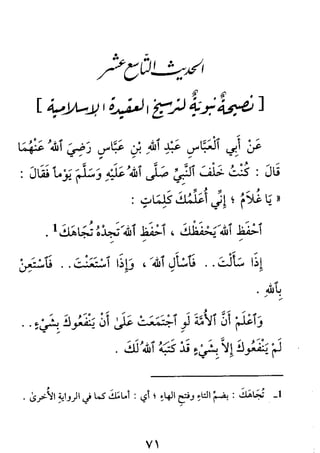 الحديث التاسع عشر
[ نصيحة نبوية لترسيخ العقيدة الإسلامية ]
عَنْ أَبِي الْعَبَّاسِ عَبْدِ اللهِ بْنِ عَبَّاسٍ رَضِيَ اللهُ عَنْهُمَا
قَالَ : كُنْتُ خَلْفَ النَّبِيِّ صَلَّى اللهُ عَلَيْهِ وَسَلَّمَ يَوْماً فَقَالَ :
« يَا غُلَامُ ؛ إِنِّي أُعَلِّمُكَ كَلِمَاتٍ :
احْفَظِ اللهَ يَحْفَظْكَ ، احْفَظِ اللهَ تَجِدْهُ تُجَاهَكَ 1 .
إِذَا سَأَلْتَ . . فَاسْأَلِ اللهَ ، وَإِذَا اسْتَعَنْتَ . . فَاسْتَعِنْ
بِاللهِ .
وَاعْلَمْ أَنَّ الأُمَّةَ لَوِ اجْتَمَعَتْ عَلَىٰ أَنْ يَنْفَعُوكَ بِشَيْءٍ . .
لَمْ يَنْفَعُوكَ إِلاَّ بِشَيْءٍ قَدْ كَتَبَهُ اللهُ لَكَ .
1ـ تُجَاهَكَ : بضمِّ التاءِ وفتحِ الهاءِ ؛ أي : أمامَكَ كما في الروايةِ الأُخرىٰ .
٧١